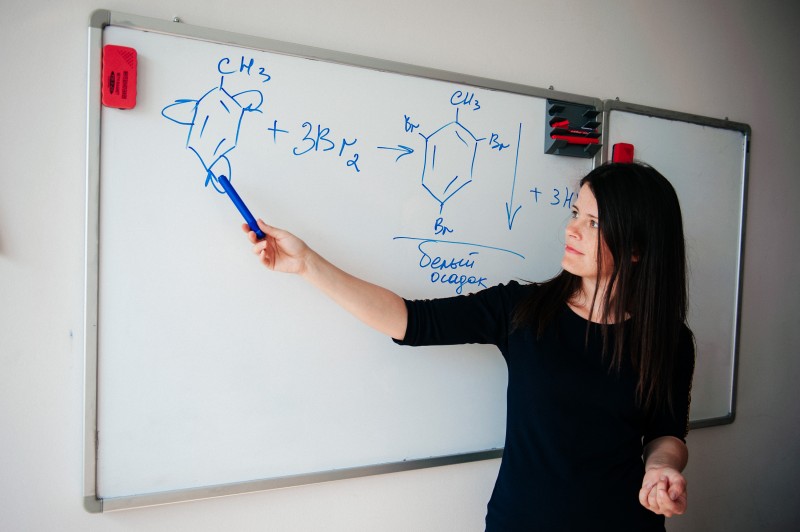 CH3
+ 3Br2 →
CH3
Br
Br
Br
+ 3H
белый
осадок